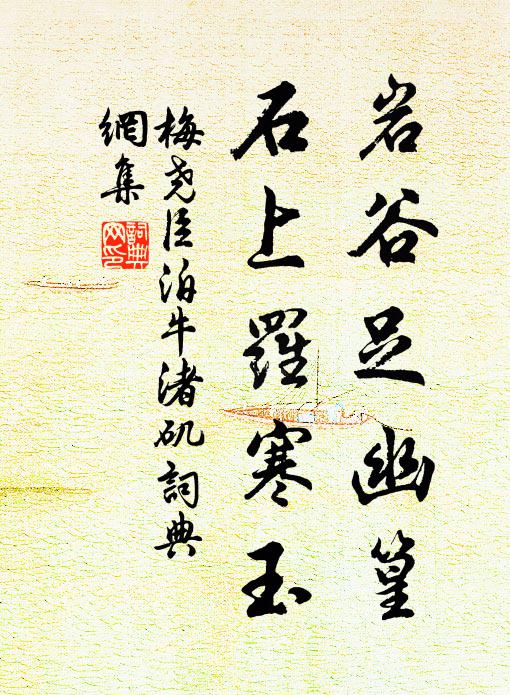 岩谷足幽篁
石上羅寒玉
梅尧臣泊牛渚矶詞典
網集
詞典网印